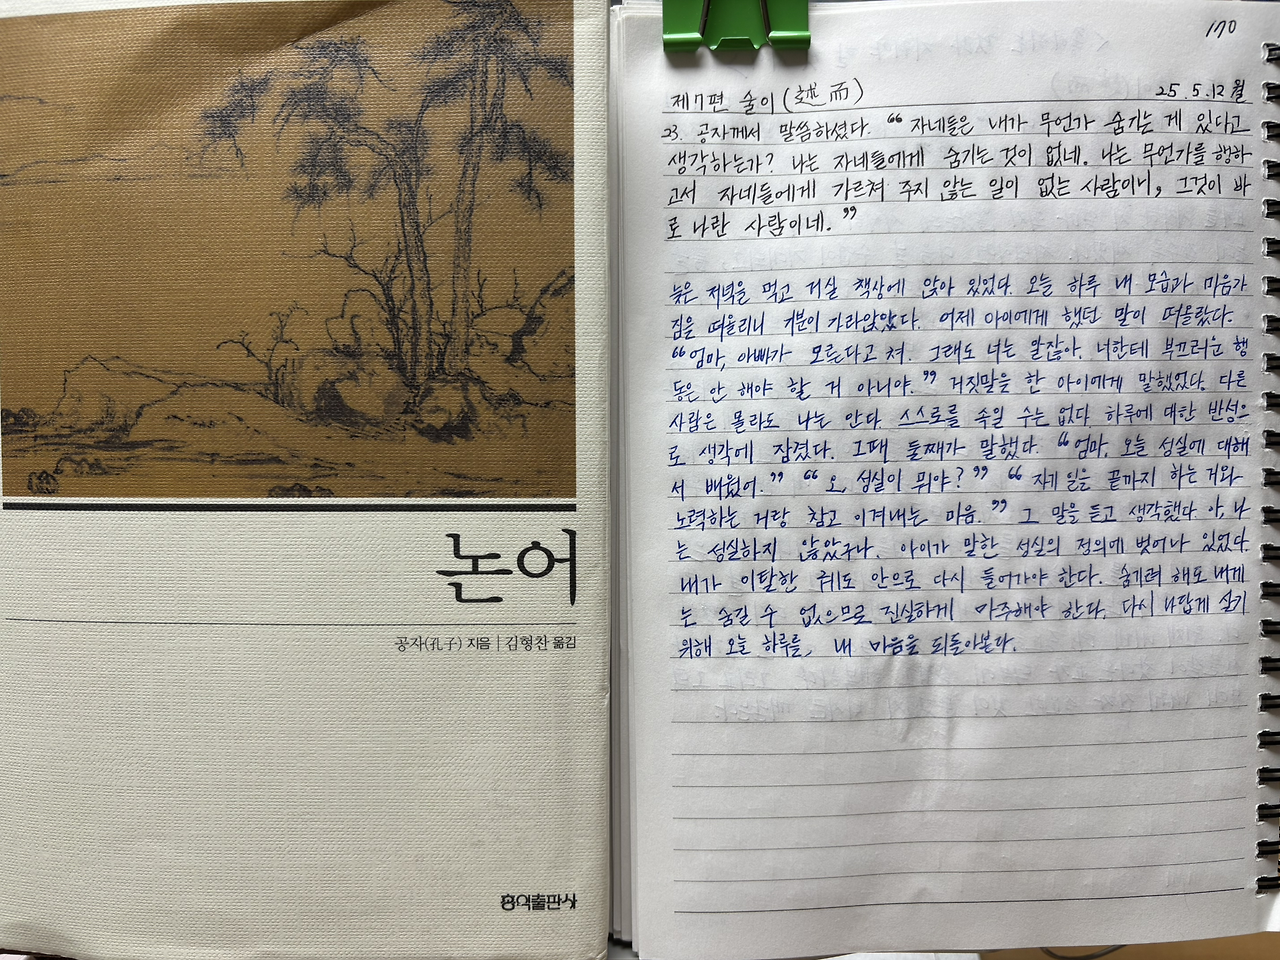 논어
공자(孔子) 지음 | 김형찬 옮김
홍익출판사
170
제7편 술이(述而) 25.5.12 월
23. 공자께서 말씀하셨다. “자네들은 내가 무언가 숨기는 게 있다고
생각하는가? 나는 자네들에게 숨기는 것이 없네. 나는 무언가를 행하
고서 자네들에게 가르쳐 주지 않는 일이 없는 사람이니, 그것이 바
로 나란 사람이네.”
늦은 저녁을 먹고 거실 책상에 앉아 있었다. 오늘 하루 내 모습과 마음가
짐을 떠올리니 기분이 가라앉았다. 어제 아이에게 했던 말이 떠올랐다.
“엄마, 아빠가 모른다고 쳐. 그래도 너는 알잖아. 너한테 부끄러운 행
동은 안 해야 할 거 아니야.” 거짓말을 한 아이에게 말했었다. 다른
사람은 몰라도 나는 안다. 스스로를 속일 수는 없다. 하루에 대한 반성으
로 생각에 잠겼다. 그때 둘째가 말했다. “엄마, 오늘 성실에 대해
서 배웠어.” “오, 성실이 뭐야?” “자기 일을 끝까지 하는 거와
노력하는 거랑 참고 이겨내는 마음.” 그 말을 듣고 생각했다. 아, 나
는 성실하지 않았구나. 아이가 말한 성실의 정의에 벗어나 있었다.
내가 이탈한 궤도 안으로 다시 들어가야 한다. 숨기려 해도 내게
는 숨길 수 없으므로 진실하게 마주해야 한다. 다시 나답게 살기
위해 오늘 하루를, 내 마음을 되돌아본다.